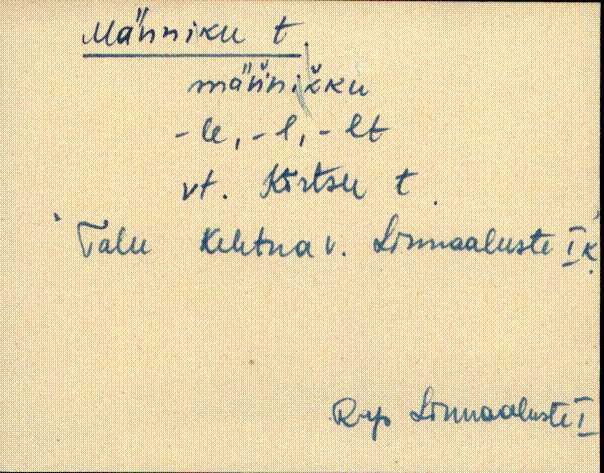 Männiku t.
männikku
-le, -l, -lt
vt. Kirtsu t.
Talu Kehtna v. Linnaaluste I k.
Rap Linnaaluste I